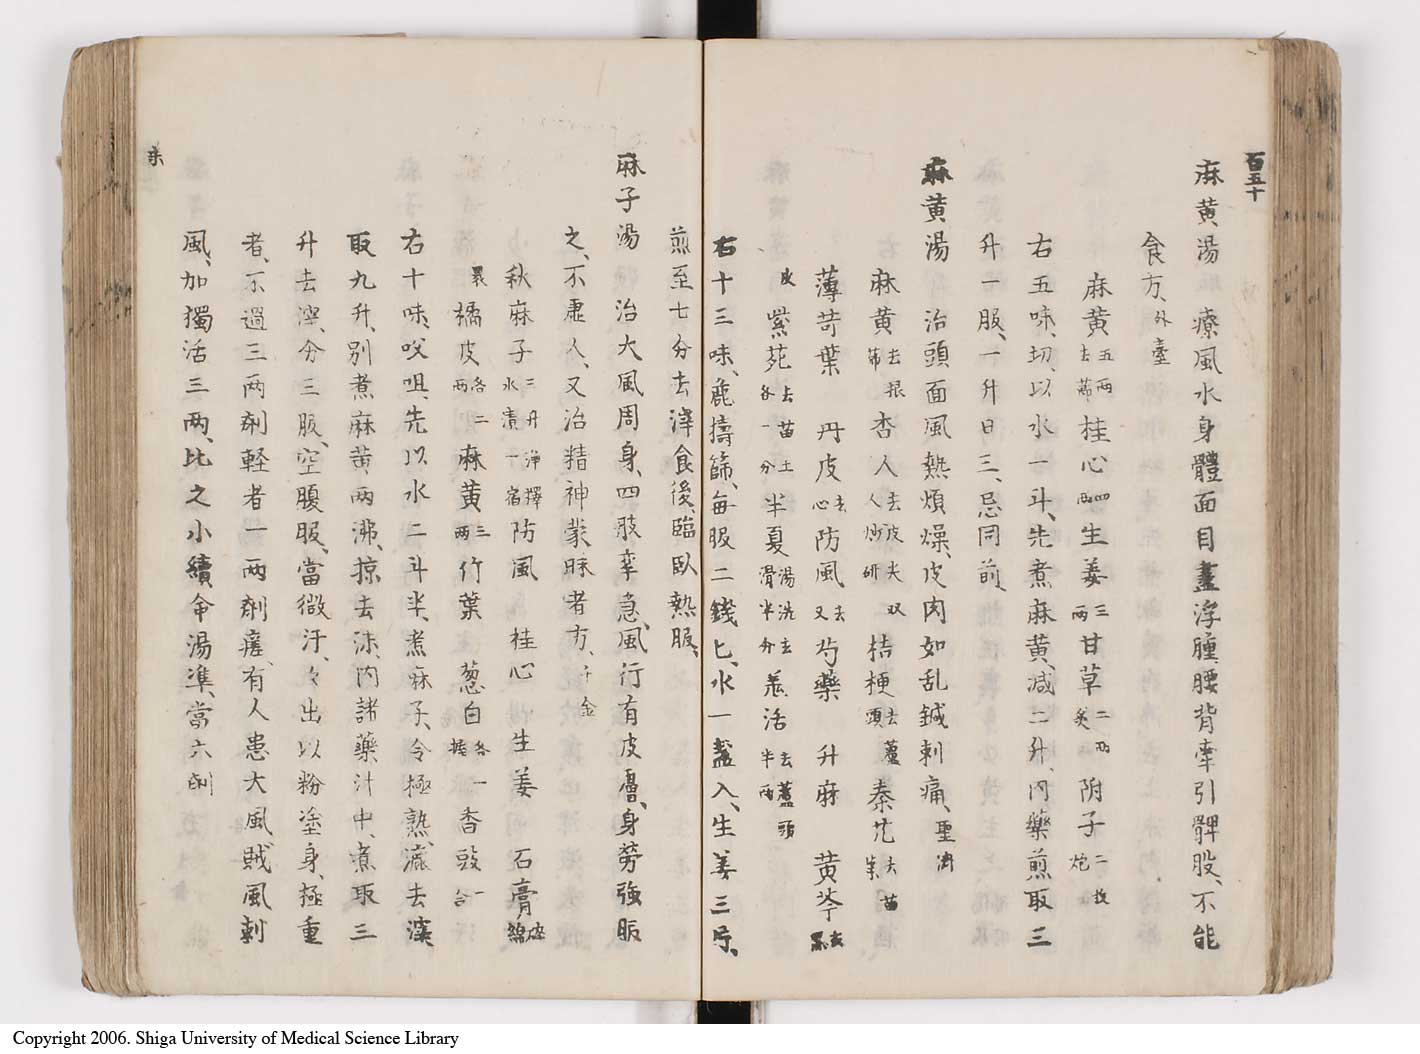 百五十
麻黄湯 療風水身體面目盡浮腫、腰背牽引髀股、不能
食方、外臺
麻黄五兩去節 桂心四兩 生姜三兩 甘草二兩炙 附子二枚炮
右五味、切、以水一斗、先煮麻黄、减二升、内藥煎取三
升一服、一升日三、忌同前、
麻黄湯 治頭面風熱煩燥、皮肉如乱鍼刺痛、聖濟
麻黄去根節 杏人去皮尖双人炒研 桔梗去蘆頭 秦艽去苗
薄苛葉 丹皮去心 防風去叉 芍藥 升麻 黄芩去黑
皮 紫苑去苗土各一分 半夏湯洗去滑半分 羗活去蘆頭半兩
右十三味、麁擣篩、每服二錢匕、水一盞入、生姜三片、
煎至七分去滓食後、臨臥熱服、
麻子湯 治大風周身、四肢牽急、風行有皮膚、身勞強服
之、不虚人、又治精神蒙昧者方、千金
秋麻子三升浄擇水漬一宿 防風 桂心 生姜 石膏碎綿
裹 橘皮各二兩 麻黄三兩 竹葉 葱白各一握 香豉一合
右十味、㕮咀、先以水二斗半、煮麻子、令極熟、漉去滓
取九升、別煮麻黄兩沸、掠去沫、内諸藥汁中、煮取三
升去滓、分三服、空腹服、當微汗、々出以粉塗身、極重
者、不過三兩剤軽者一兩剤瘥、有人患大風賊風刺
風、加獨活三兩、比之小續命湯準、當六剤